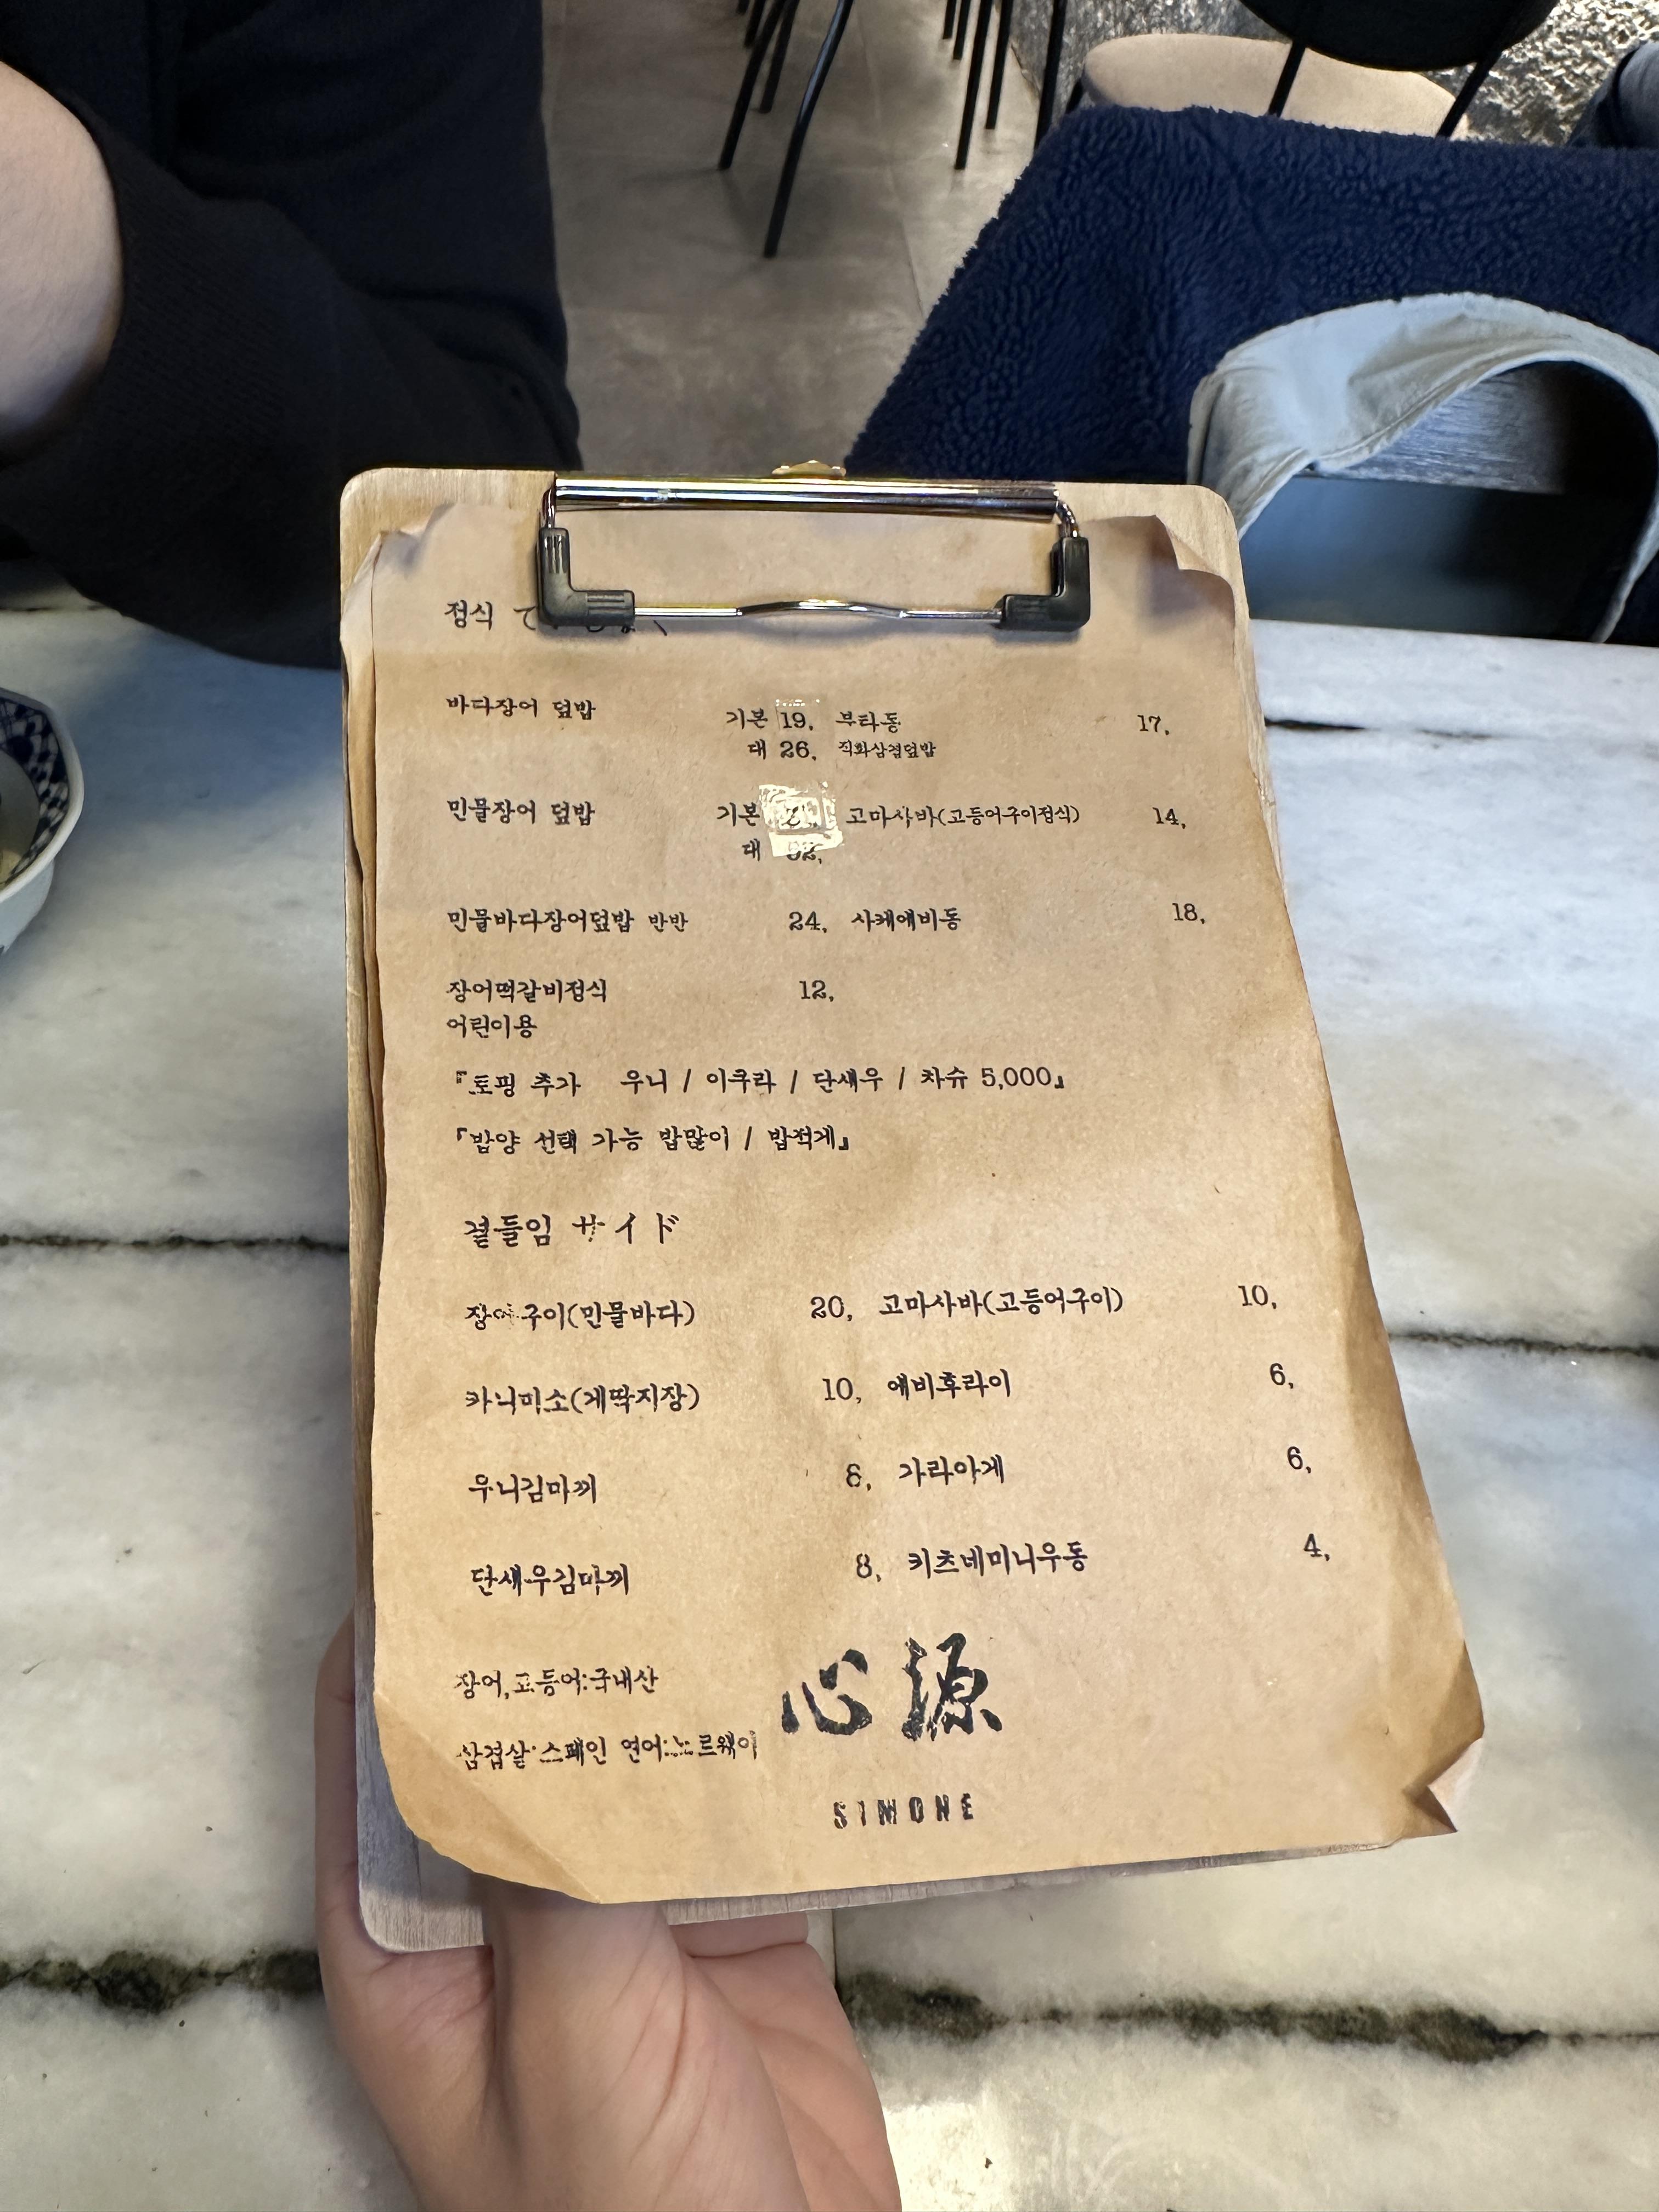 정식
바다장어 덮밥 기본 19, 부타동 17,
대 26, 직화삼겹덮밥
민물장어 덮밥 기본 고마사바(고등어구이정식) 14,
대
민물바다장어덮밥 반반 24, 사케에비동 18,
장어떡갈비정식 12,
어린이용
『토핑 추가 우니 / 이쿠라 / 단새우 / 차슈 5,000』
『밥양 선택 가능 밥많이 / 밥적게』
곁들임 サイド
장어구이(민물바다) 20, 고마사바(고등어구이) 10,
카니미소(게딱지장) 10, 에비후라이 6,
우니김마끼 가라아게 6,
단새우김마끼 8, 키츠네미니우동 4,
장어,고등어:국내산
삼겹살:스페인 연어:노르웨이
心源
SIMONE